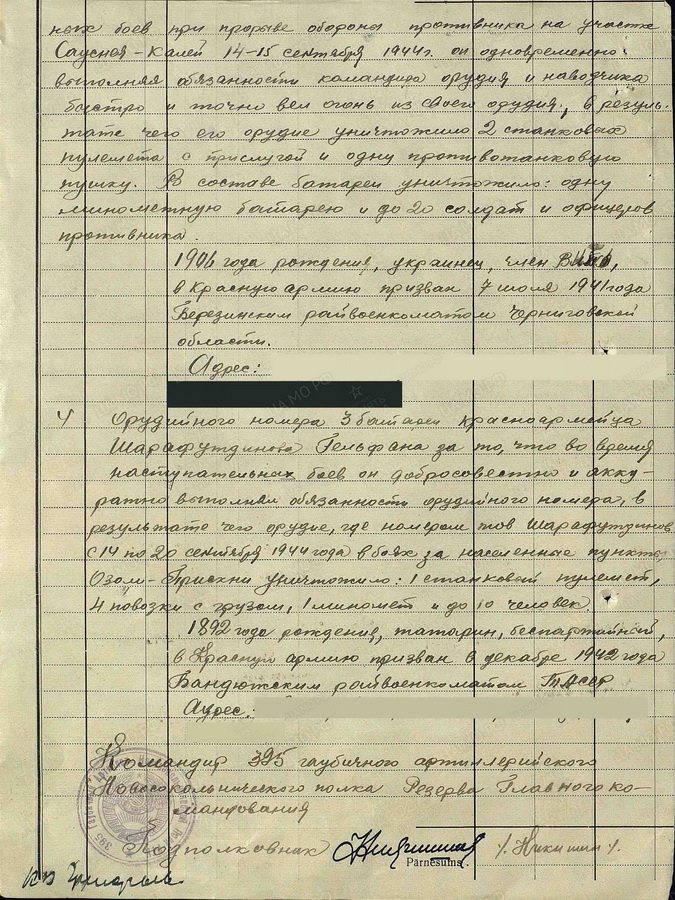 ных боев при прорыве обороны противника на участке
Саусная-Калей 14-15 сентября 1944г. он одновременно
выполняя обязанности командира орудия и наводчика
быстро и точно вел огонь из своего орудия, в резуль-
тате чего его орудие уничтожило 2 станковых
пулемета с прислугой и одну противотанковую
пушку. В составе батареи уничтожило: одну
минометную батарею и до 20 солдат и офицеров
противника
1906 года рождения, украинец, член
в Красную армию призван 7 июля 1941 года
Березинским райвоенкоматом Черниговской
области.
Адрес:
4 Орудийного номера 3 батареи красноармейца
Шарафутдинова Гельфана за то, что во время
наступательных боев он добросовестно и акку-
ратно выполнял обязанности орудийного номера, в
результате чего орудие, где номером тов Шарафутдинов
с 14 по 20 сентября 1944 года в боях за населенные пункты
Озол-Прискни уничтожило: 1 станковый пулемет,
4 повозки с грузом, 1 миномет и до 10 человек.
1892 года рождения, татарин, беспартийный,
в Красную армию призван в декабре 1942 года
Бандюжским райвоенкоматом ТАССР
Адрес:
Командир 395 гаубичного артиллерийского
Новосокольнического полка Резерва Главного ко-
мандования
Подполковник /. Никитин /.
Pārnēsums